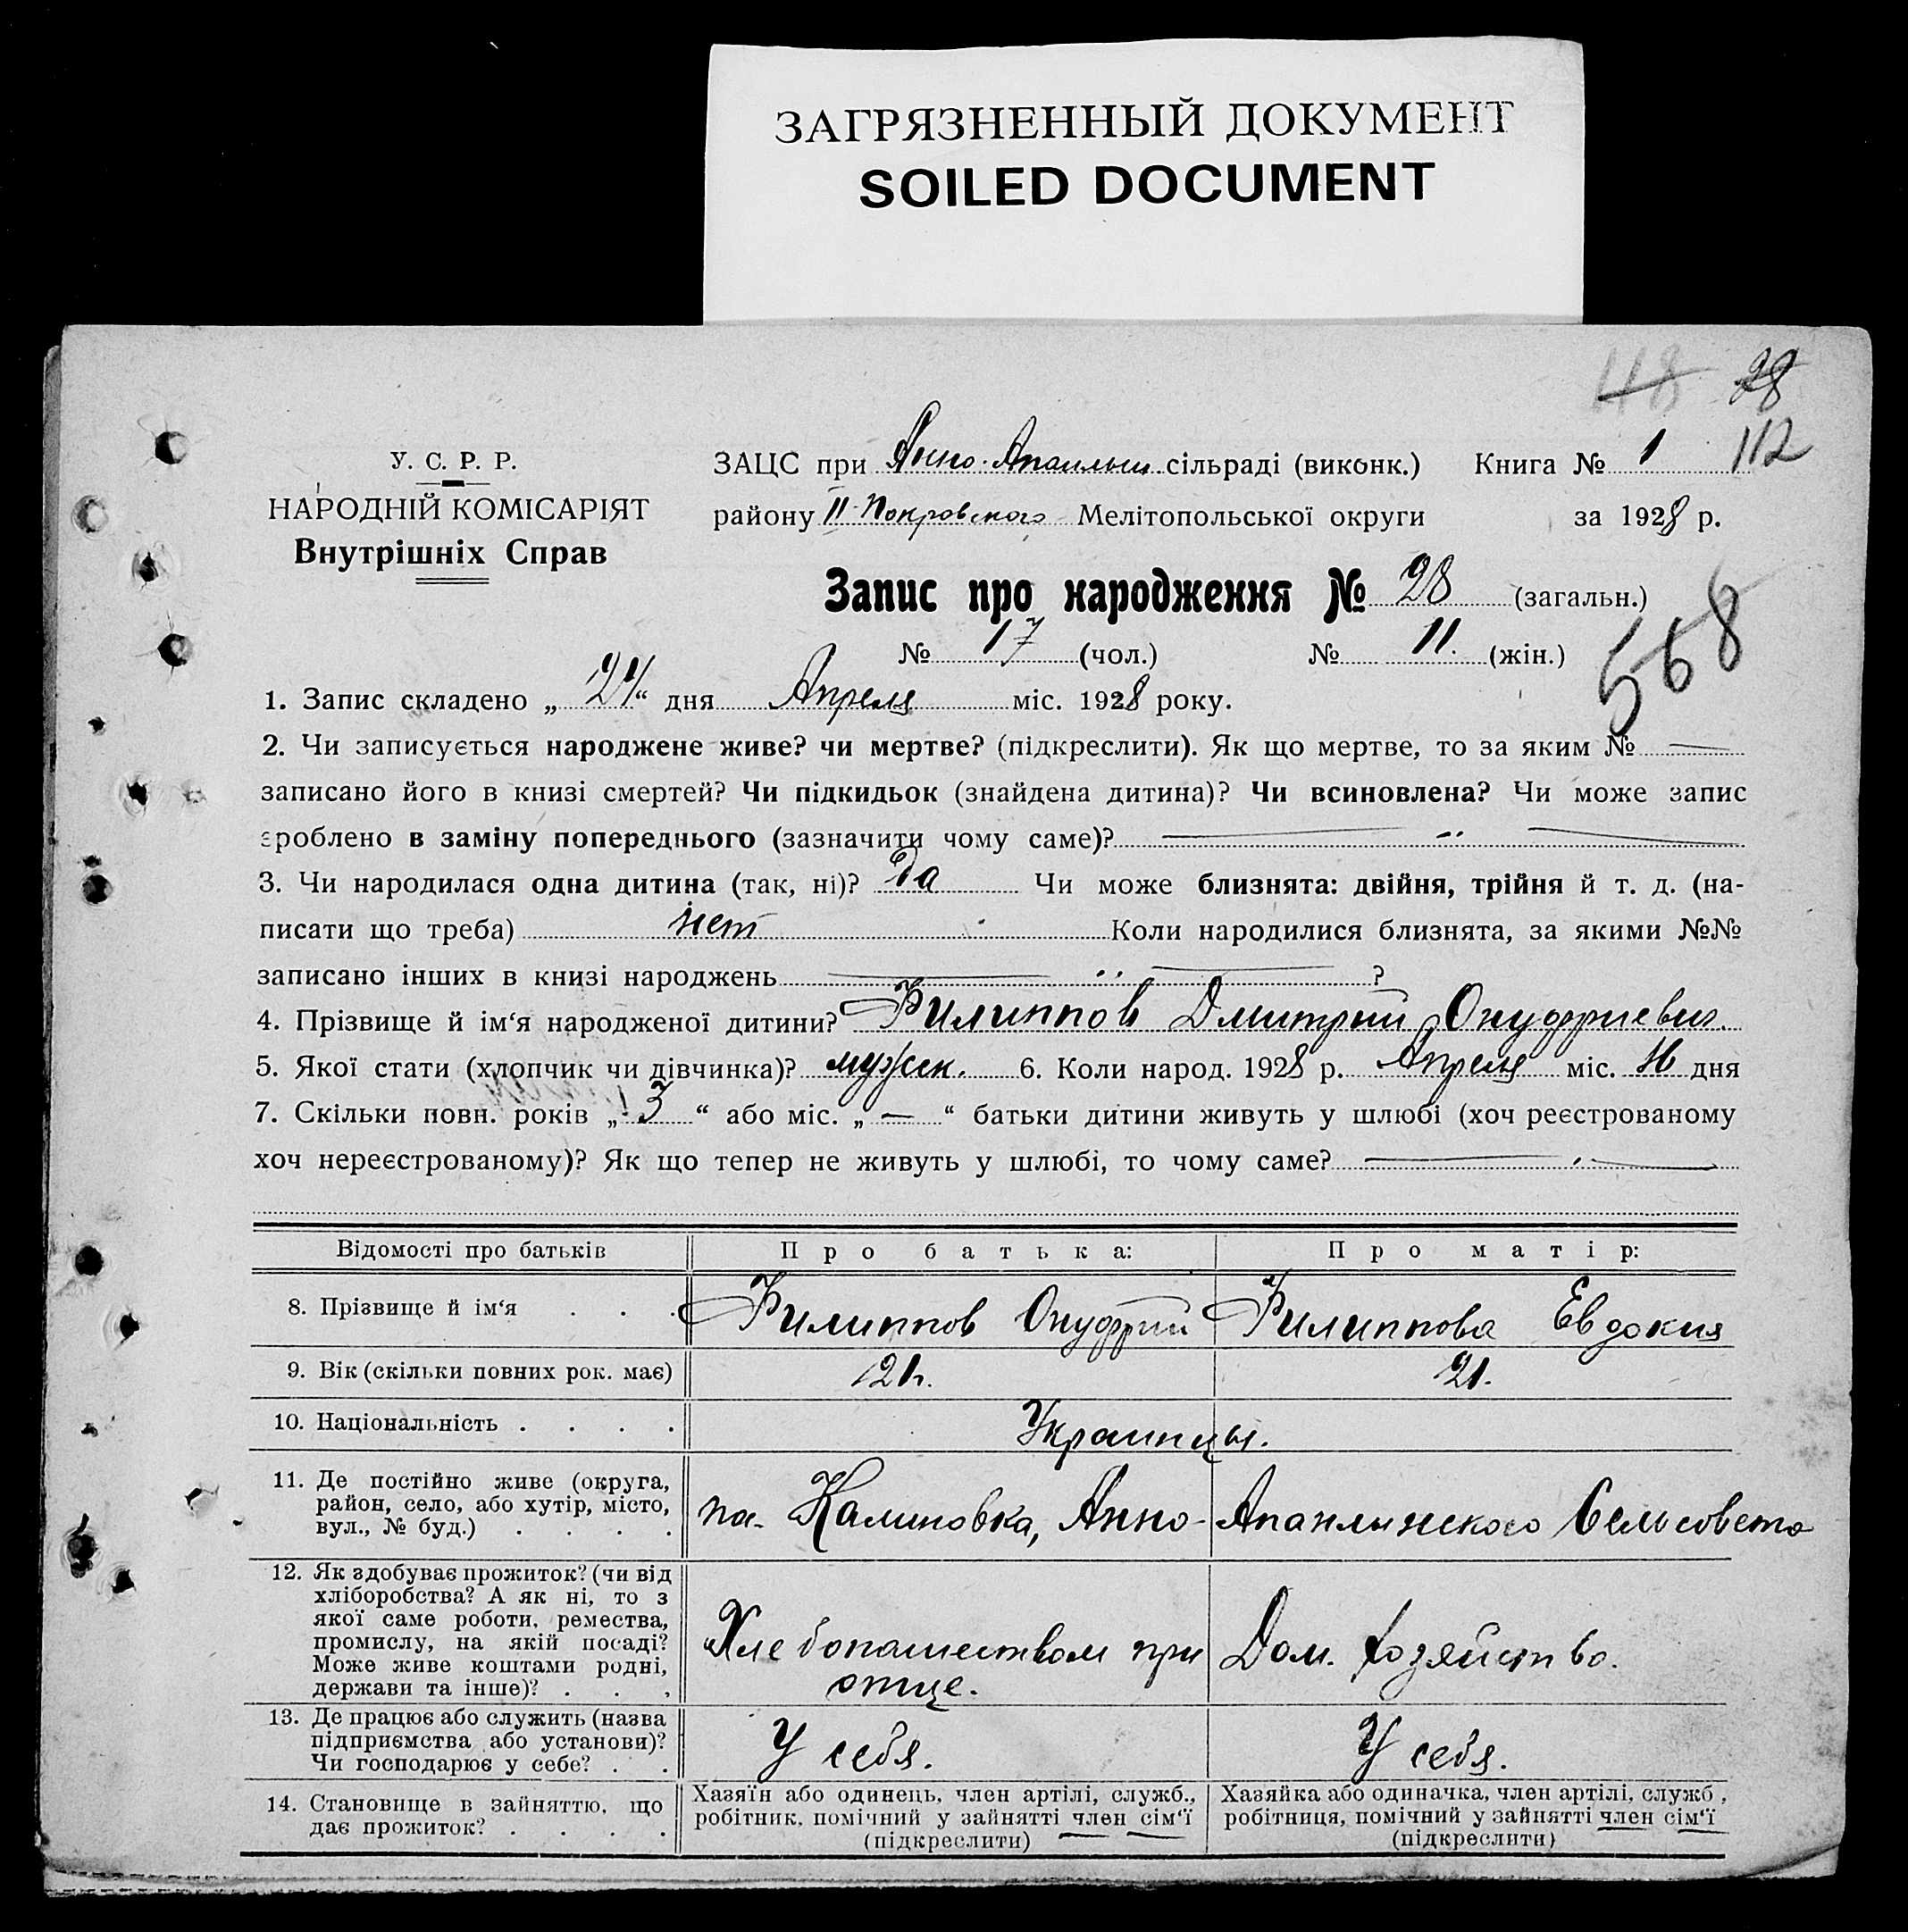 ЗАГРЯЗНЕННЫЙ ДОКУМЕНТ
SOILED DOCUMENT
118 28
У. С. Р. Р.
НАРОДНІЙ КОМІСАРІЯТ
Внутрішніх Справ
ЗАЦС при Анно-Апанлын. сільраді (виконк.) Книга № 1 112
району II Покровского Мелітопольської округи за 1928 р.
Запис про народження № 28 (загальн.)
№ 17 (чол.) № 11. (жін.)
568
1. Запис складено „ 24 “ дня Апреля міс. 1928 року.
2. Чи записується народжене живе? чи мертве? (підкреслити). Як що мертве, то за яким № —
записано його в книзі смертей? Чи підкидьок (знайдена дитина)? Чи всиновлена? Чи може запис
зроблено в заміну попереднього (зазначити чому саме)? — „ —
3. Чи народилася одна дитина (так, ні)? Да Чи може близнята: двійня, трійня й т. д. (на-
писати що треба) нет Коли народилися близнята, за якими №№
записано інших в книзі народжень — „ — ?
4. Прізвище й ім‘я народженої дитини? Филиппов Дмитрий Онуфриевич.
5. Якої стати (хлопчик чи дівчинка)? мужск. 6. Коли народ. 1928 р. Апреля міс. 16 дня
7. Скільки повн. років „ 3 “ або міс. „ — “ батьки дитини живуть у шлюбі (хоч реєстрованому
хоч нереєстрованому)? Як що тепер не живуть у шлюбі, то чому саме? —
Відомості про батьків Про батька: Про матір:
8. Прізвище й ім‘я . . . Филиппов Онуфрий Филиппова Евдокия
9. Вік (скільки повних рок. має) 21 г. 21.
10. Національність . . . . Украинцы.
11. Де постійно живе (округа,
район, село, або хутір, місто,
вул., № буд.) . . . .
пос. Калиновка, Анно-Апанлынского Сельсовета
12. Як здобуває прожиток? (чи від
хліборобства? А як ні, то з
якої саме роботи, ремества,
промислу, на якій посаді?
Може живе коштами родні,
держави та інше)? . . .
Хлебопашеством при
отце.
Дом. хозяйство.
13. Де працює або служить (назва
підприємства або установи)?
Чи господарює у себе? . .
У себя. У себя.
14. Становище в зайняттю, що
дає прожиток? . . . .
Хазяїн або одинець, член артілі, служб.,
робітник, помічний у зайнятті член сім‘ї
(підкреслити)
Хазяйка або одиначка, член артілі, служб.,
робітниця, помічний у зайнятті член сім‘ї
(підкреслити)